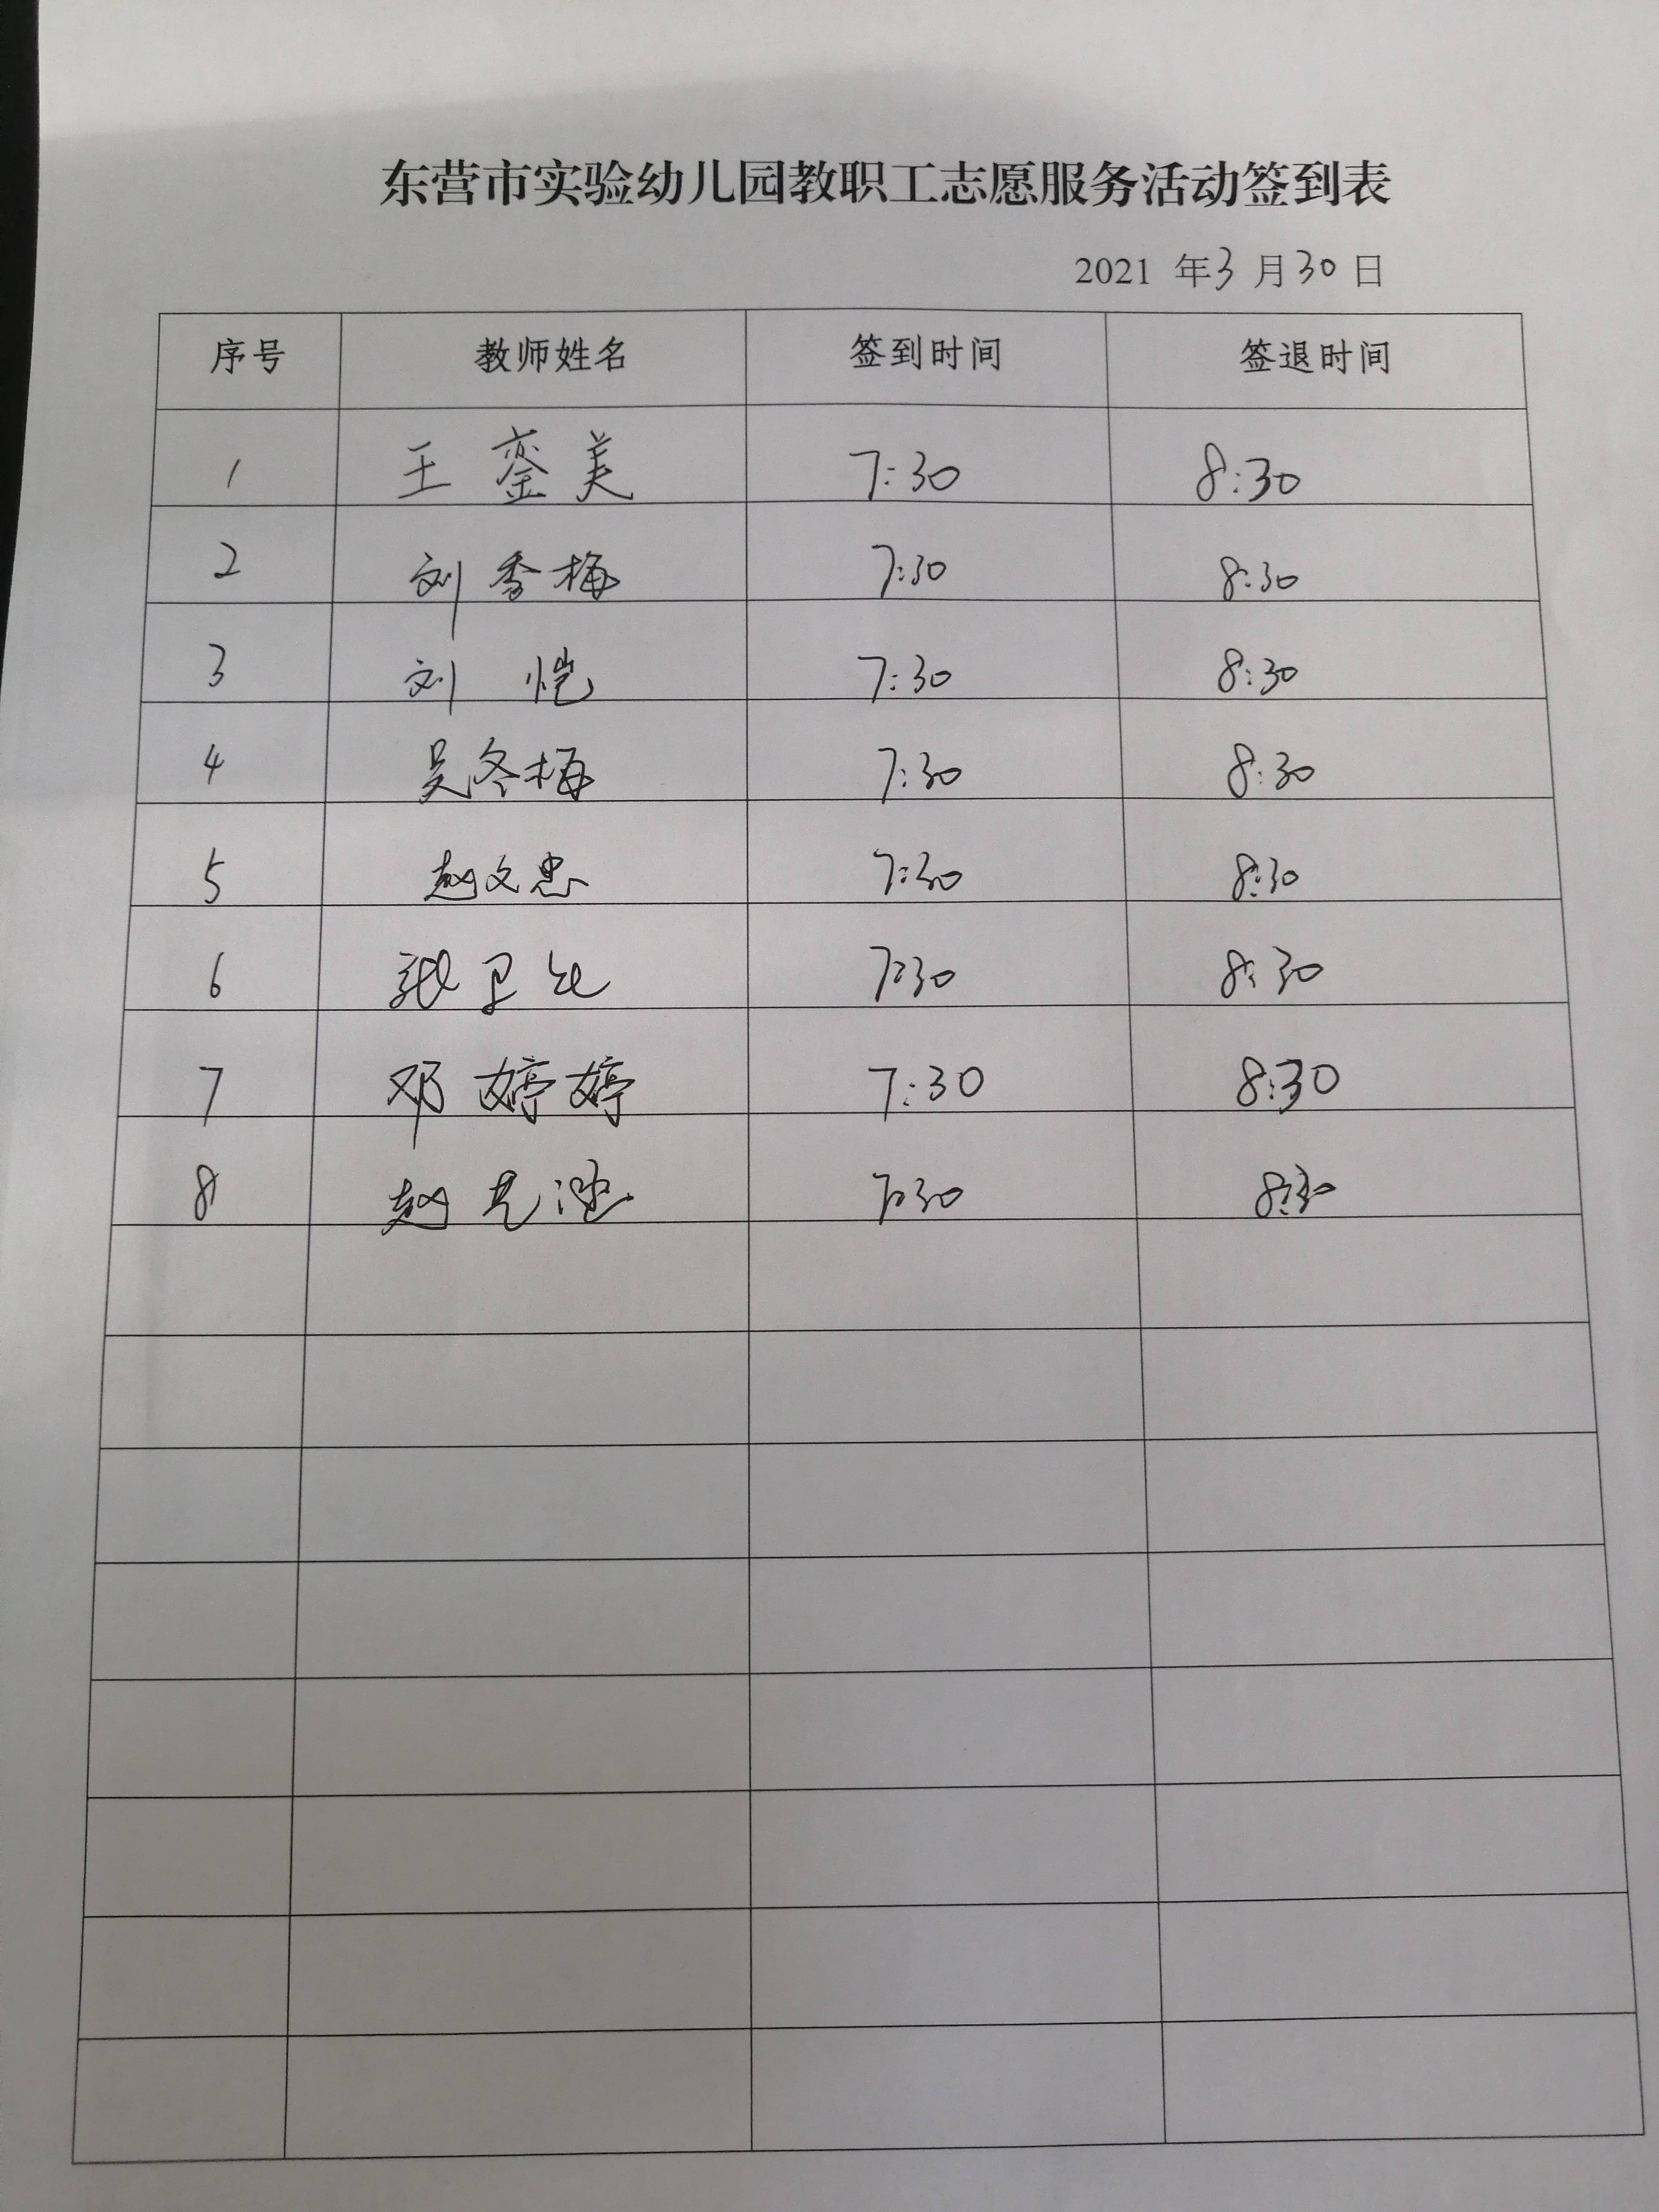 东营市实验幼儿园教职工志愿服务活动签到表
2021 年 3 月 30 日
序号 教师姓名 签到时间 签退时间
1 王銮美 7:30 8:30
2 刘秀梅 7:30 8:30
3 刘恺 7:30 8:30
4 吴冬梅 7:30 8:30
5 赵文忠 7:30 8:30
6 张卫 7:30 8:30
7 邓婷婷 7:30 8:30
8 赵 7:30 8:30